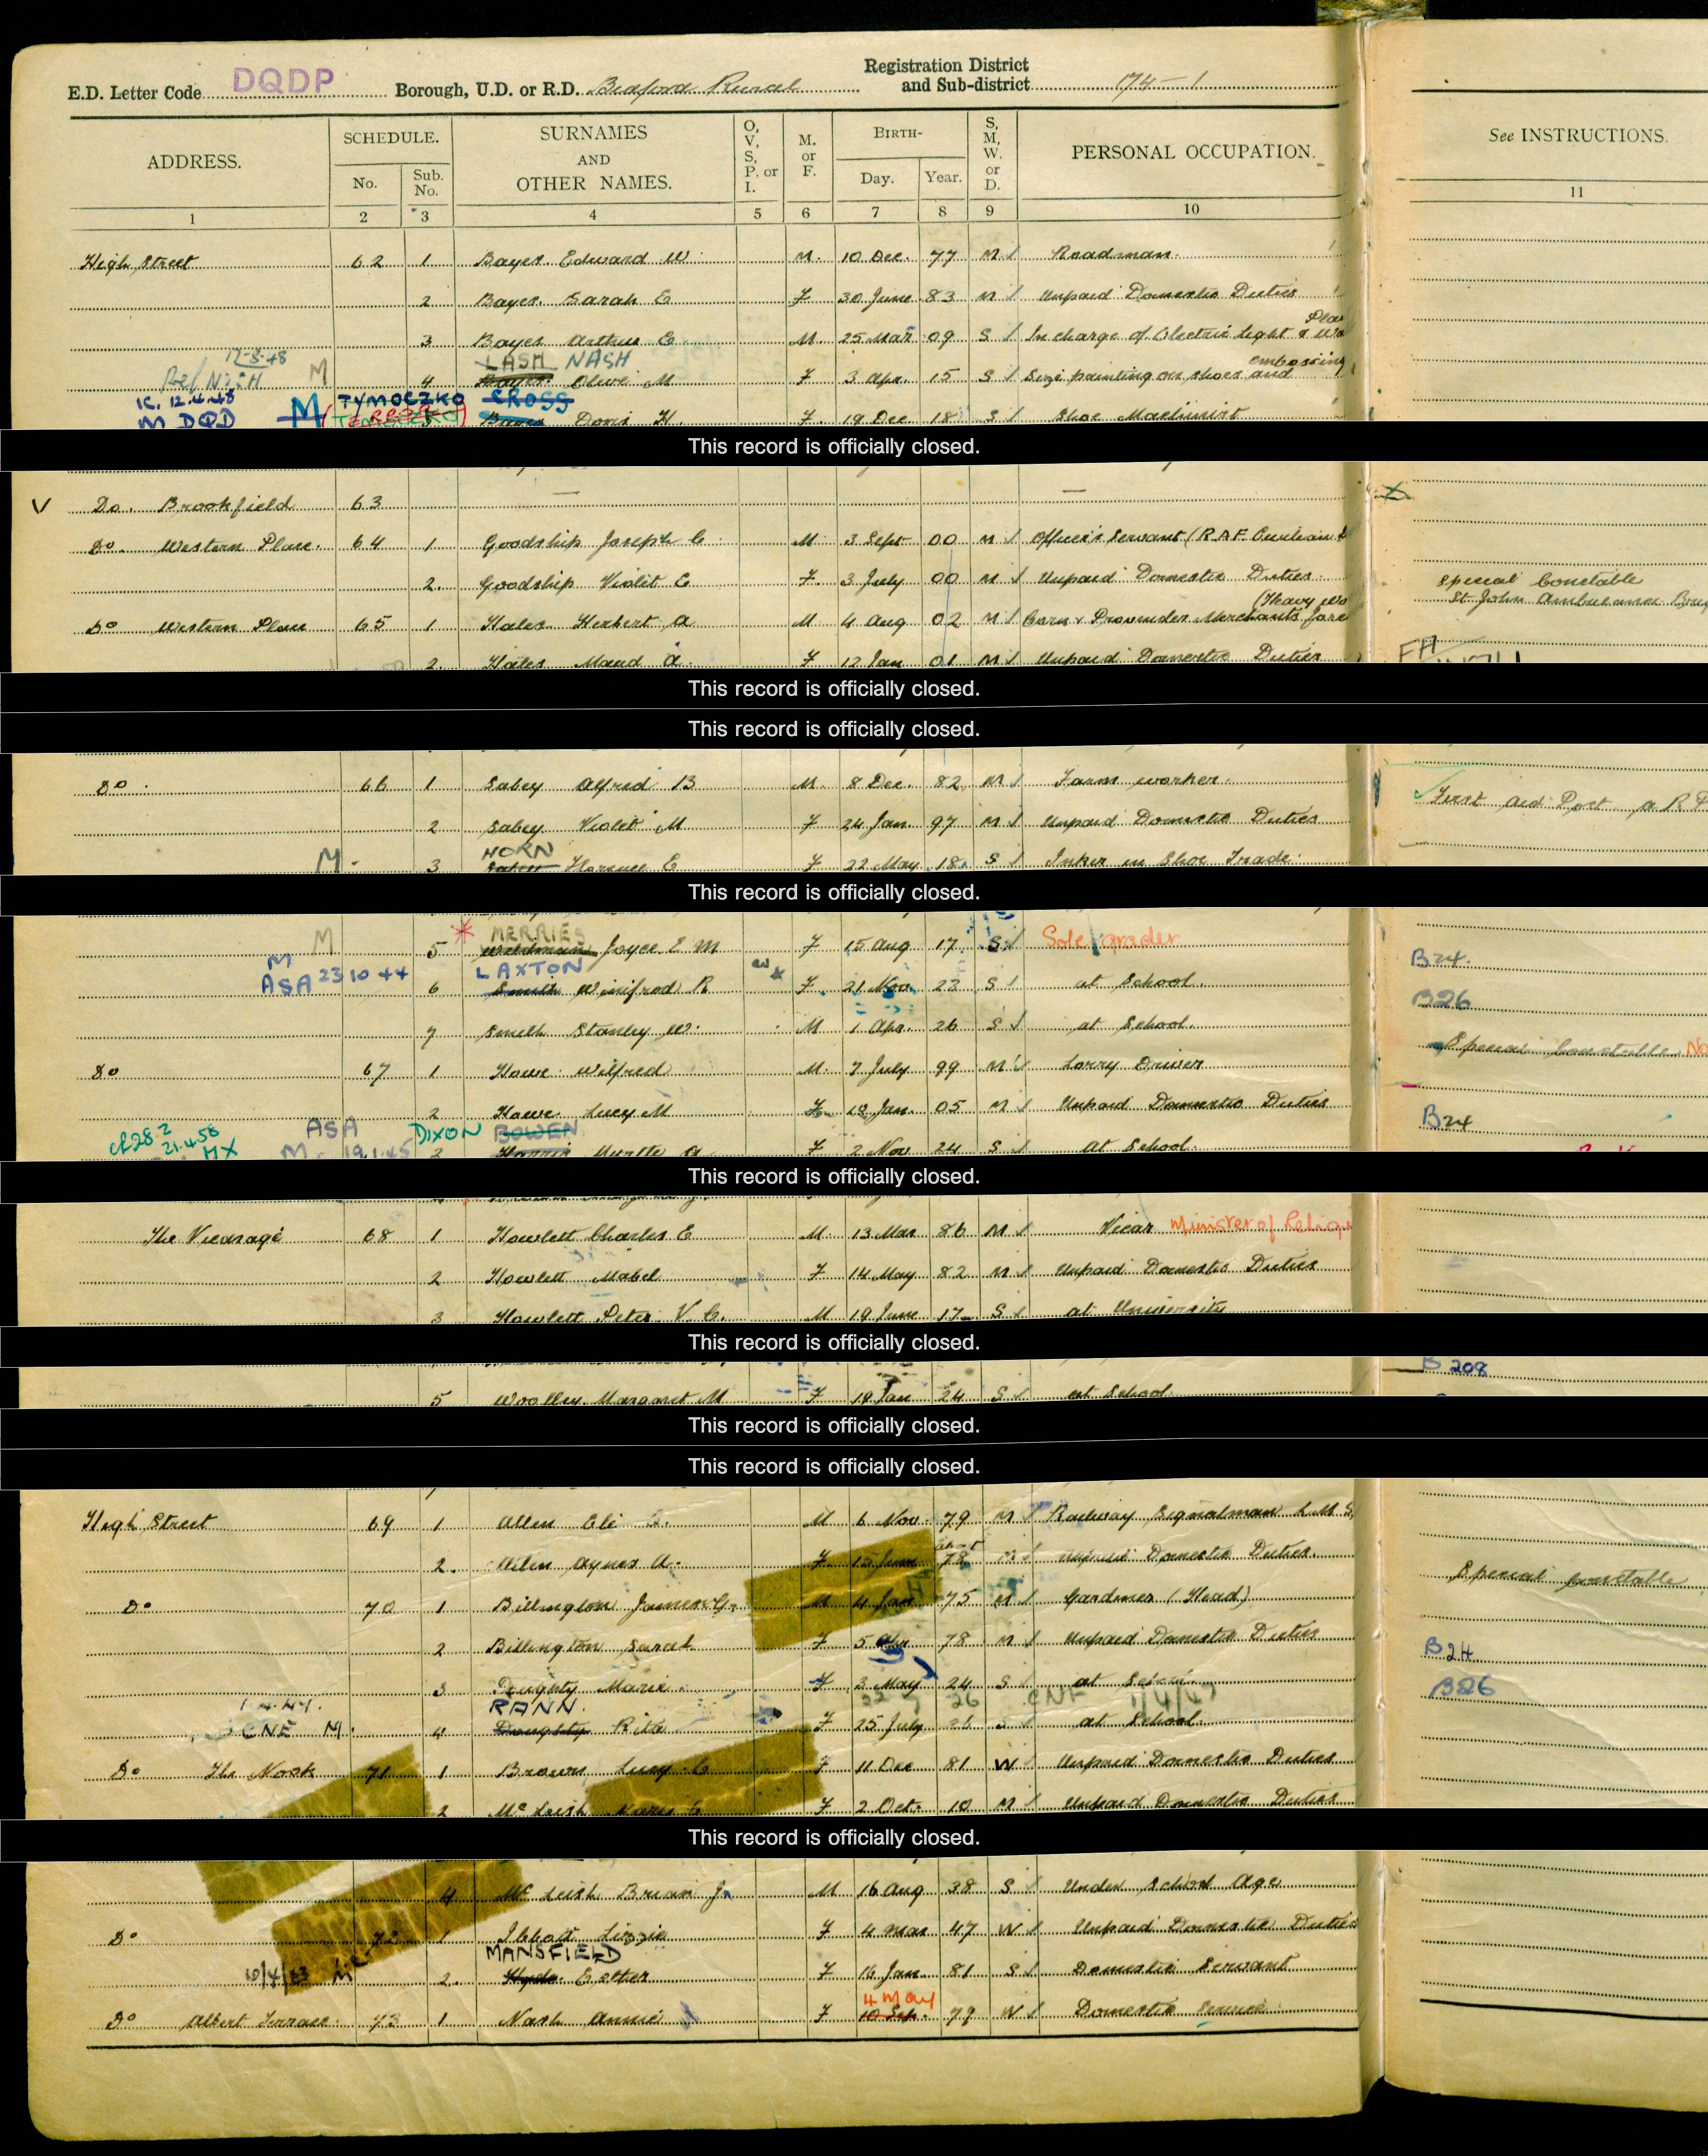 E.D. Letter Code DQDP Borough, U.D. or R.D. Bedford Rural Registration District and Sub-district 174-1
ADDRESS. SCHEDULE. No. Sub. No. SURNAMES AND OTHER NAMES. O, V, S, P. or I. M. or F. BIRTH- Day. Year. S, M, W. or D. PERSONAL OCCUPATION. See INSTRUCTIONS.
1 2 3 4 5 6 7 8 9 10 11
High Street 62 1 Bayes Edward W. M. 10 Dec. 77 M Roadman.
2 Bayes Sarah E F 30 June 83 M Unpaid Domestic Duties
3 Bayes Arthur E M. 25 Mar 09 S In charge of Electric Light &
17-8-48 LASH NASH embossing
NASH M 4 Olive M F 3 Apr. 15 S painting on shoes and
12.4.48 M TYMOCZKO CROSS
M DQD Doris H. F. 19 Dec 18 S Shoe Machinist
This record is officially closed.
V Do. Brookfield 63 — —
Do. Western Place. 64 1 Goodship Joseph C M 3 Sept 00 M Officer's Servant (R.A.F. Civilian
2. Goodship Violet E F. 3 July 00 M Unpaid Domestic Duties. Special Constable
(Heavy St. John Ambulance
Do Western Place 65 1 Hales Herbert A M 4 Aug 02 M Corn & Provender Merchants
2. Hales Maud A. F 12 Jan 01 M Unpaid Domestic Duties
This record is officially closed.
This record is officially closed.
Do. 66 1 Sabey Alfred B M. 8 Dec. 82 M Farm worker. First Aid Post
2 Sabey Violet M F 24 Jan. 97 M Unpaid Domestic Duties
HORN
M. 3 Florence E F 22 May 18 S Inker in Shoe Trade.
This record is officially closed.
MERRIES
M 5 Joyce E M F 15 Aug 17 S Sole grader B24.
M LAXTON
ASA 23 10 44 6 Smith Winifred R F. 21 Nov. 23 S at School. B26
7 Smith Stanley W. M 1 Apr. 26 S at School. Special Constable.
Do 67 1 Howe Wilfred M. 7 July 99 M Lorry Driver
2 Howe Lucy M F. 18 Jan. 05 M Unpaid Domestic Duties B24
21.4.58 MX ASA DIXON BOWEN
M. 19.1.45 3 Harris Myrtle A F 2 Nov 24 S At School.
This record is officially closed.
The Vicarage 68 1 Howlett Charles E M. 13 Mar 86 M Vicar Minister of
2 Howlett Mabel F 14 May 82 M Unpaid Domestic Duties
3 Howlett Peter V. C. M 19 June 17 S at University
This record is officially closed.
B 208
5 Woolley Margaret M F 19 Jan 24 S at School
This record is officially closed.
This record is officially closed.
High Street 69 1 Allen Eli M 6 Nov. 79 M Railway Signalman L.M.S.
2. Allen Agnes A. F 15 June 78 M Unpaid Domestic Duties. Special Constable
Do 70 1 Billington James G. M 4 Jan 75 M Gardener (Head)
2 Billington Sarah F 5 Apr 78 M Unpaid Domestic Duties B24
3 Doughty Marie. F 3 May 24 S at School B26
1.4.47. RANN. 22 7 26 CNF 1/4/47
CNE M. 4 Doughty Rita F 25 July S at School.
Do The Nook 71 1 Brown Lucy E F 11 Dec 81 W Unpaid Domestic Duties
2 McLeish F 2 Oct. 10 M Unpaid Domestic Duties
This record is officially closed.
4 McLeish Brian J. M 16 Aug 38 S Under School Age
Do 72 1 Lizzie F 4 Mar 47 W Unpaid Domestic Duties
MANSFIELD
2. Hyde Esther F 16 Jan. 81 S Domestic Servant
4 May
Do Albert Terrace. 73 1 Nash Annie F 10 Sep. 79 W Domestic Service